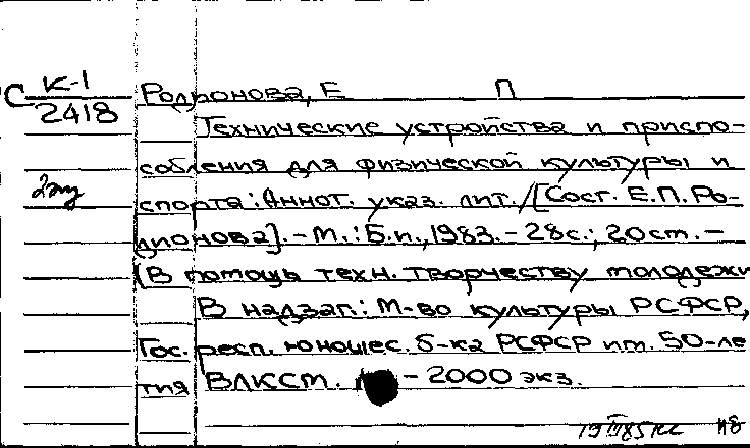 С К-1
2418
Родионова, Е П
Технические устройства и приспо-
собления для физической культуры и
спорта: Аннот. указ. лит. /[Сост. Е.П. Ро-
дионова]. - М.: Б.и., 1983. - 28с.; 20см. -
(В помощь техн. творчеству молодежи
В надзаг.: М-во культуры РСФСР,
Гос. респ. юношес. б-ка РСФСР им. 50-ле
тия ВЛКСМ. - 2000 экз.
2 экз
19 III 85 нб